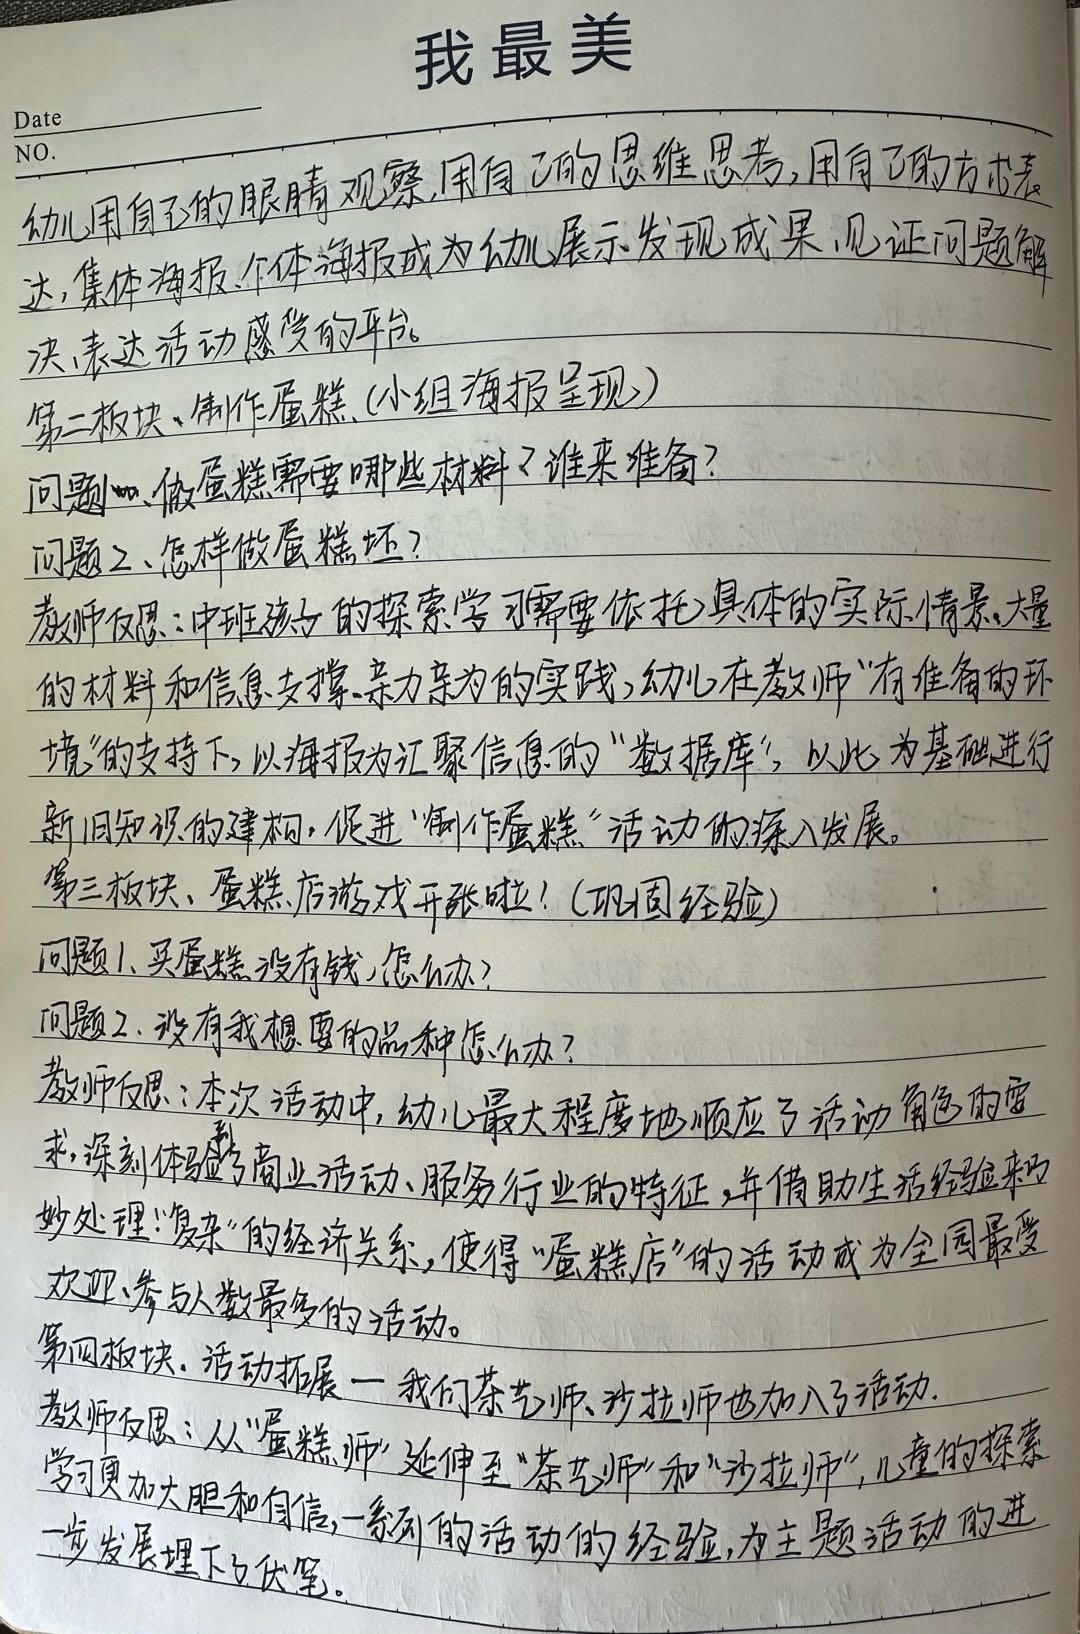 我最美
Date
NO.
幼儿用自己的眼睛观察,用自己的思维思考,用自己的方式表
达,集体海报、个体海报成为幼儿展示发现成果、见证问题解
决、表达活动感受的平台。
第二板块、制作蛋糕、(小组海报呈现)
问题1、做蛋糕需要哪些材料?谁来准备?
问题2、怎样做蛋糕坯?
教师反思:中班孩子的探索学习需要依托具体的实际情景、大量
的材料和信息支撑、亲力亲为的实践,幼儿在教师“有准备的环
境”的支持下,以海报为汇聚信息的“数据库”,以此为基础进行
新旧知识的建构,促进“制作蛋糕”活动的深入发展。
第三板块、蛋糕店游戏开张啦!(巩固经验)
问题1、买蛋糕没有钱,怎么办?
问题2、没有我想要的品种怎么办?
教师反思:本次活动中,幼儿最大程度地顺应了活动角色的需
求,深刻体验到了商业活动、服务行业的特征,并借助生活经验来巧
妙处理“复杂”的经济关系,使得“蛋糕店”的活动成为全园最受
欢迎、参与人数最多的活动。
第四板块、活动拓展—我们茶艺师、沙拉师也加入了活动.
教师反思:从“蛋糕师”延伸至“茶艺师”和“沙拉师”,儿童的探索
学习更加大胆和自信,一系列的活动的经验,为主题活动的进
一步发展埋下了伏笔。